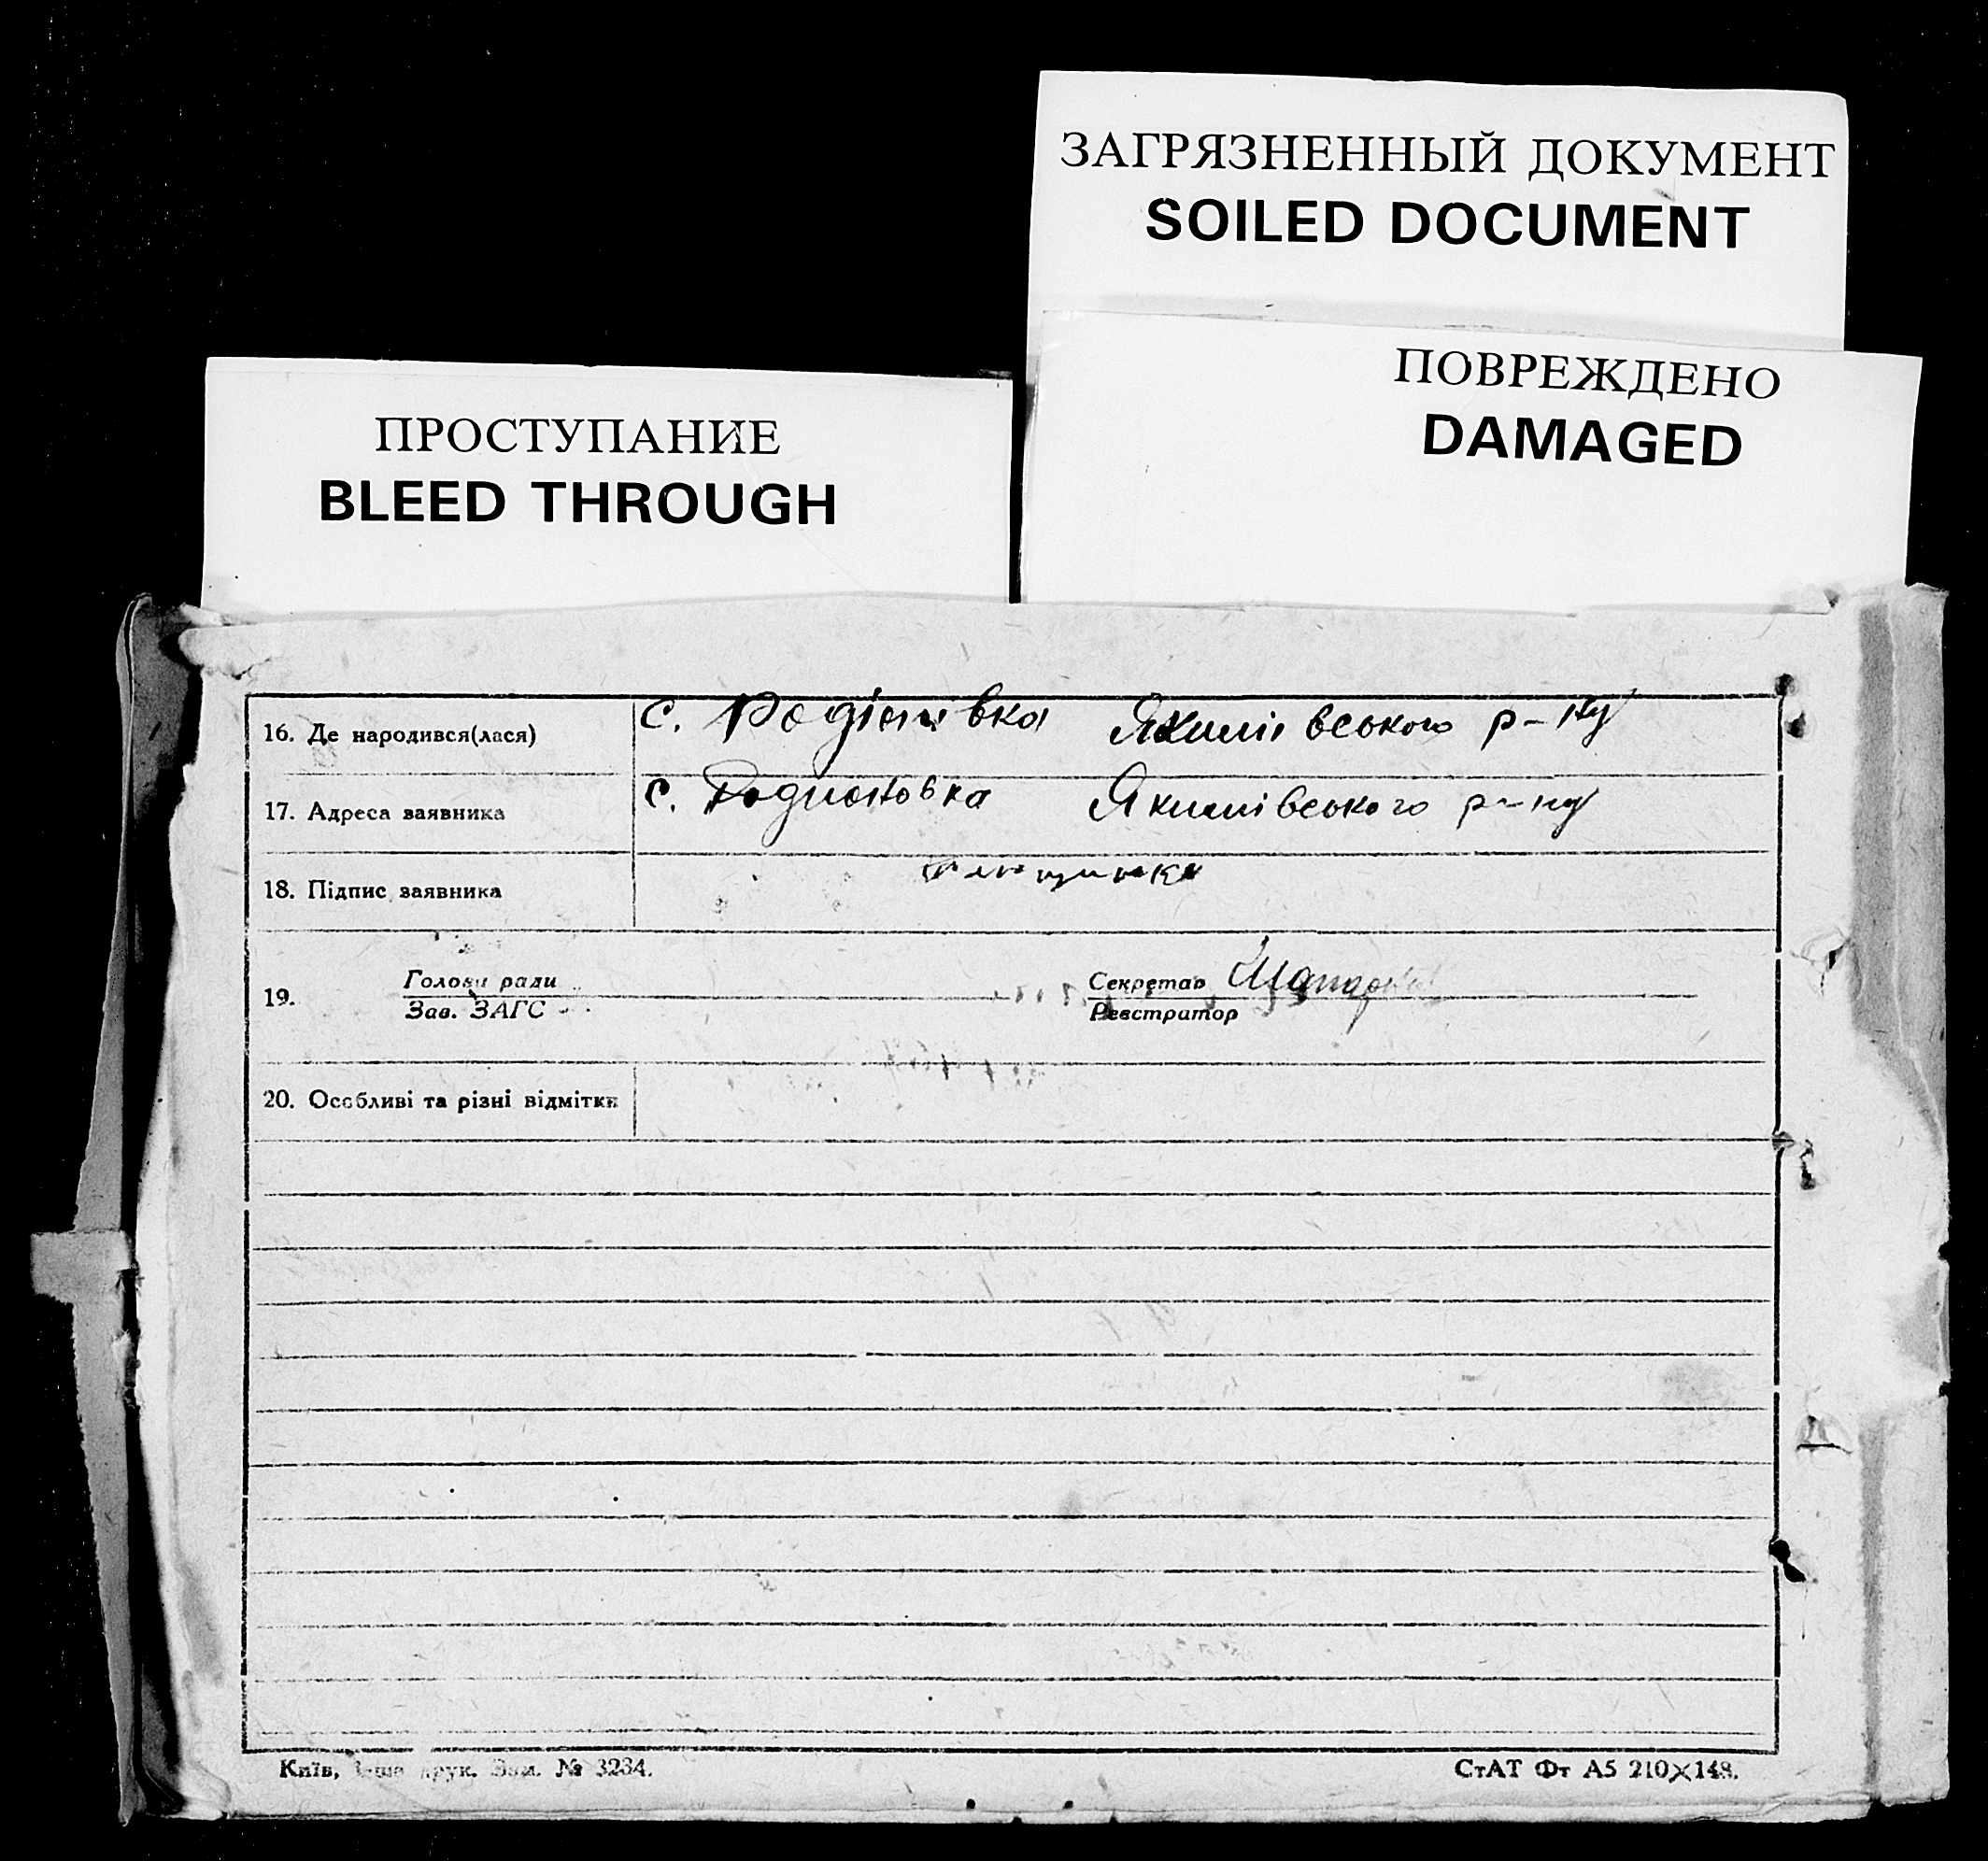 ЗАГРЯЗНЕННЫЙ ДОКУМЕНТ
SOILED DOCUMENT
ПОВРЕЖДЕНО
DAMAGED
ПРОСТУПАНИЕ
BLEED THROUGH
16. Де народився(лася) с. Родіонівка Якимівського р-ну
17. Адреса заявника с. Родионовка Якимівського р-ну
18. Підпис заявника
19. Голова ради Секретар
Зав. ЗАГС Реєстратор
20. Особливі та різні відмітки
Київ, друк. Зам. № 3234. СтАТ Фт А5 210×148.